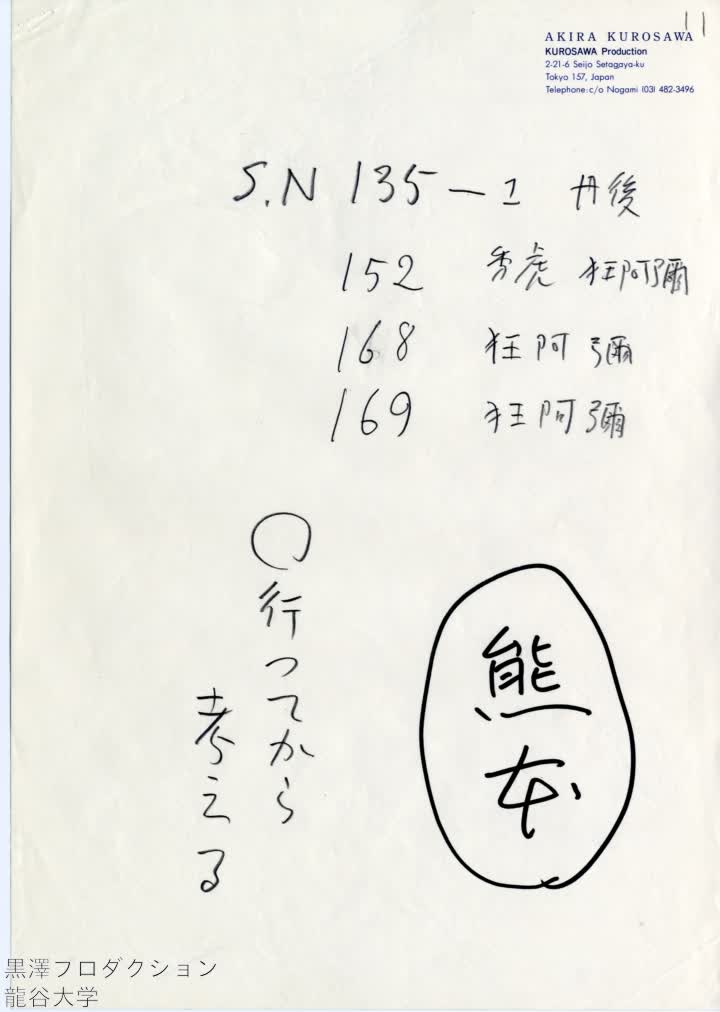 11
AKIRA KUROSAWA
KUROSAWA Production
2-21-6 Seijo Setagaya-ku
Tokyo 157, Japan
Telephone: c/o Nogami (03) 482-3496
S.N 135-1 丹後
152 秀虎 狂阿彌
168 狂阿彌
169 狂阿彌
熊本
○行ってから
考える
黒澤プロダクション
龍谷大学